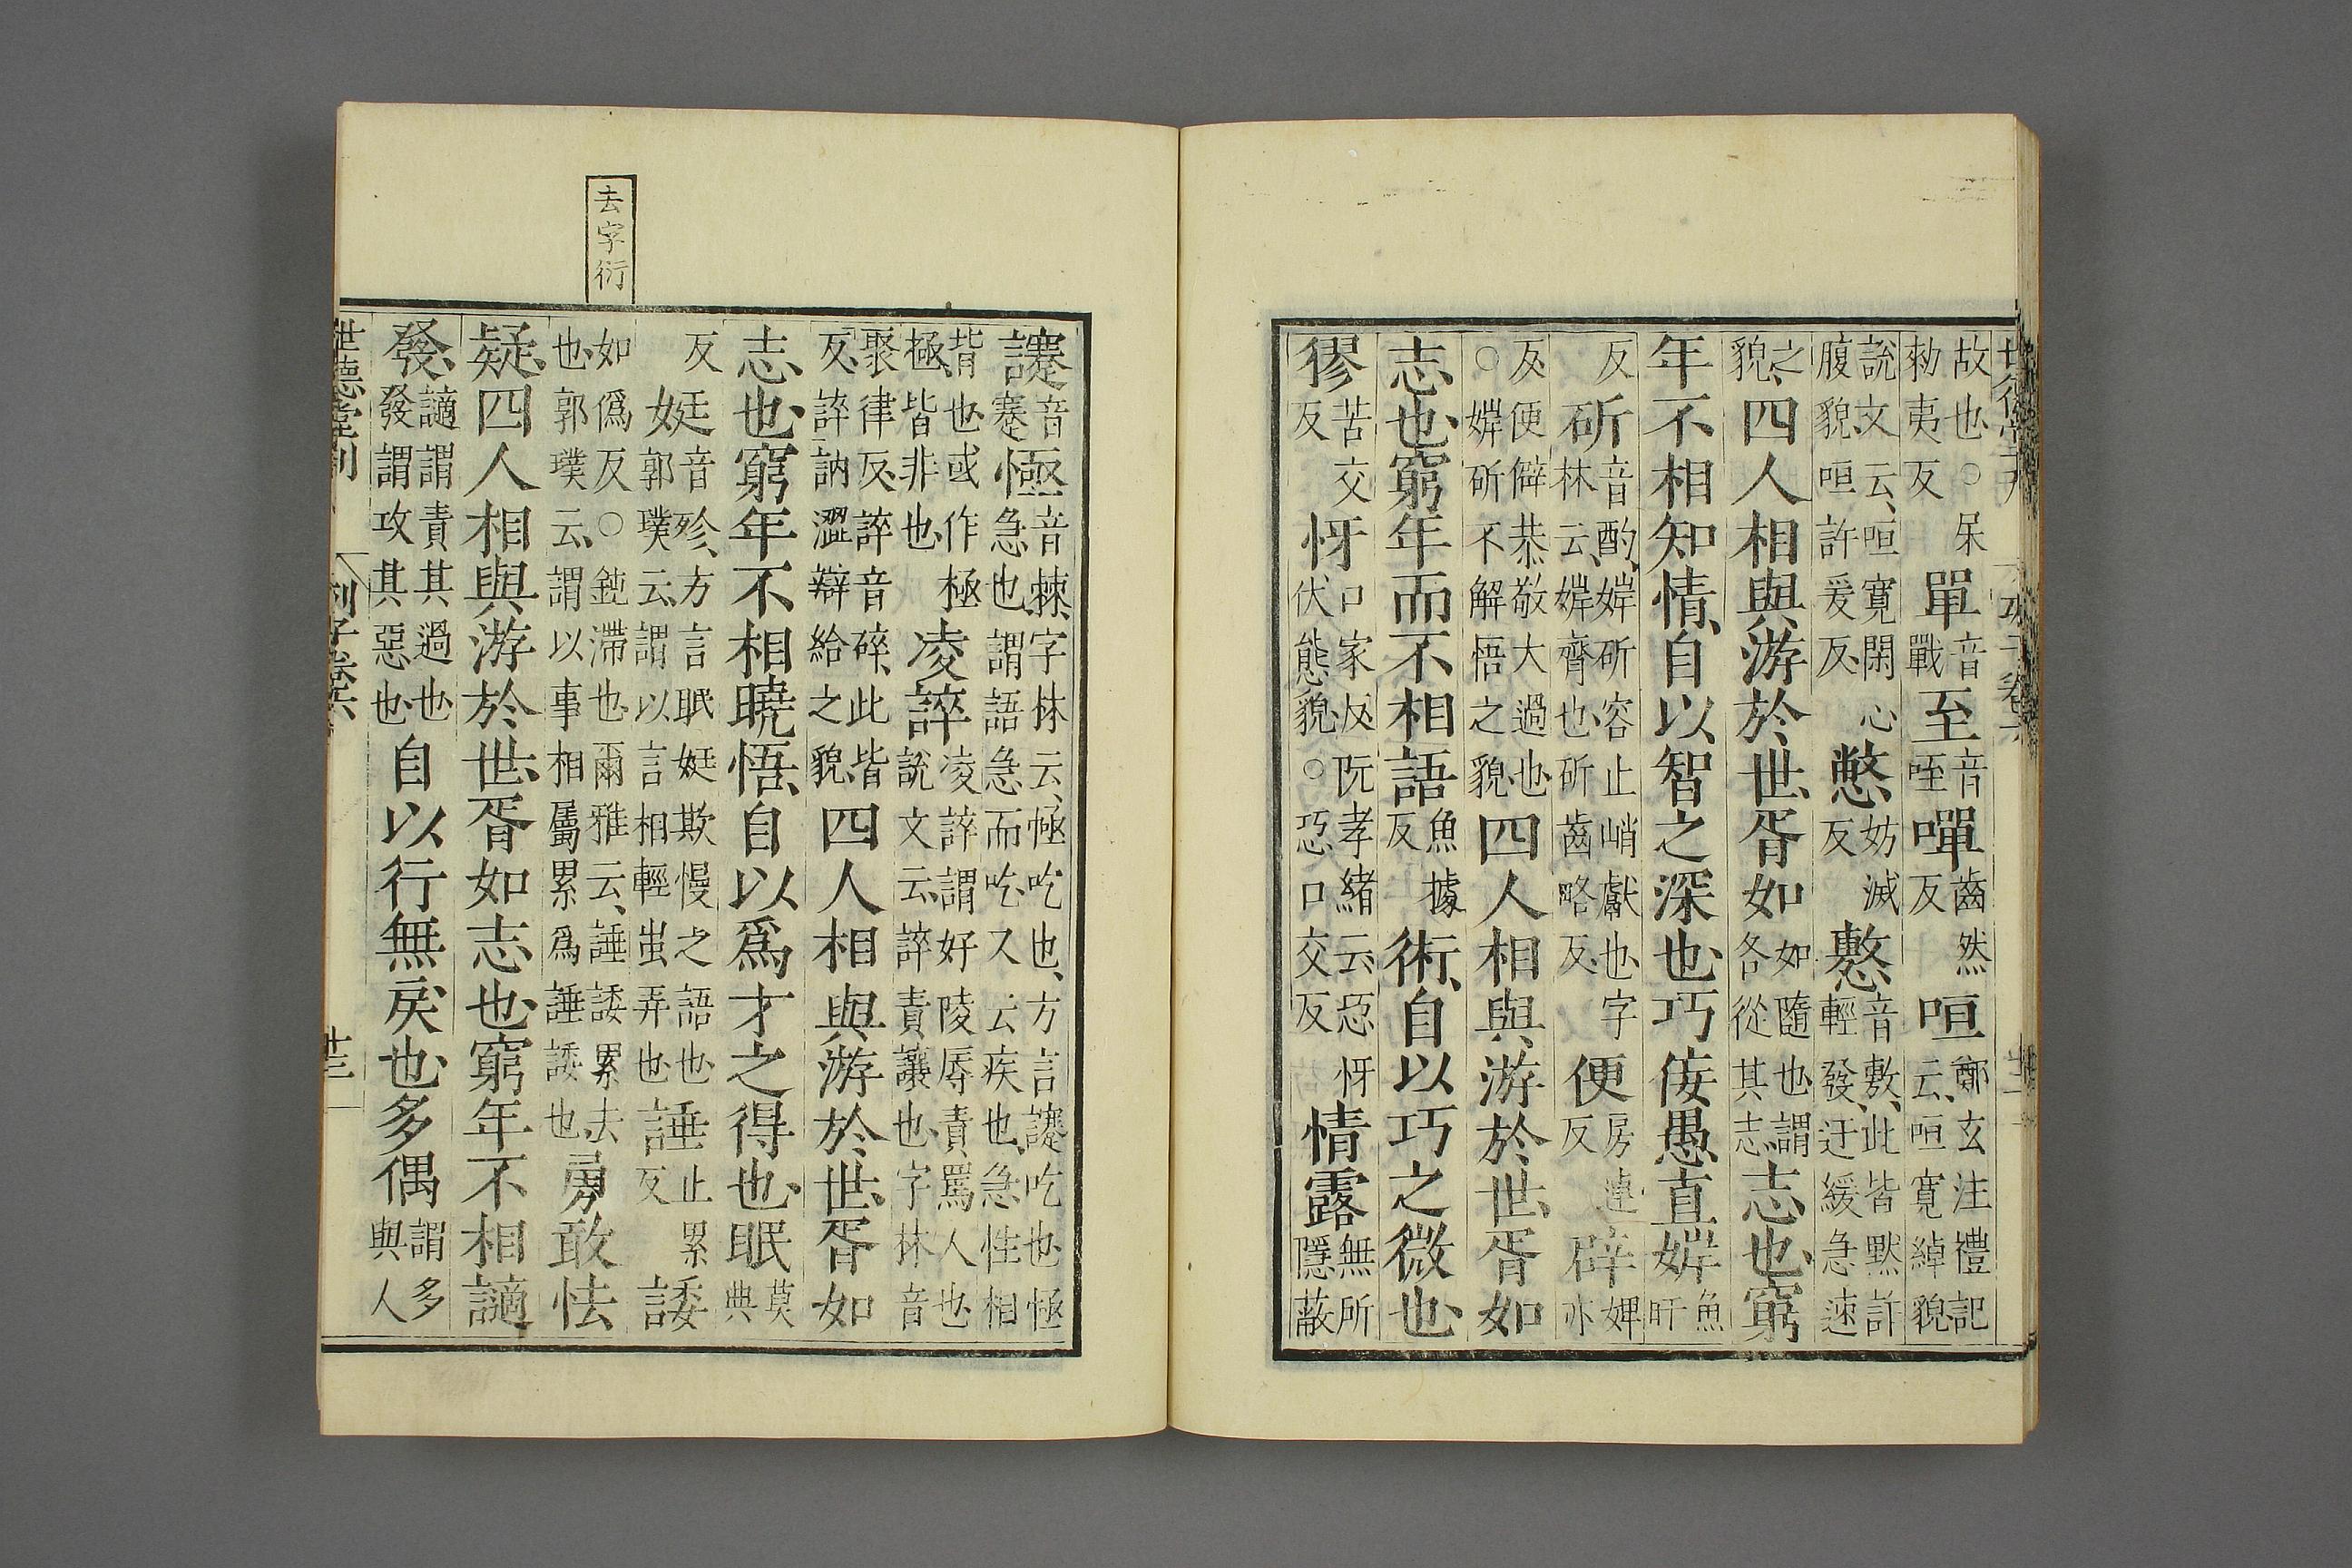 故也○呆勑夷反單音戰至音咥嘽齒然反咺鄭玄注禮記云咺寬綽貌
說文云咺寬閑心腹貌咺許爰反憋妨滅反懯音敷此皆黙許輕發迂緩急速
之貌四人相與游於世胥如如隨也謂各從其志志也窮
年不相知情自以智之深也巧佞愚直婩魚旰
反斫音酌婩斫容止峭巘也字林云婩齊也斫齒略反便房連反辟婢亦
反便僻恭敬大過也○婩斫不解悟之貌四人相與游於世胥如
志也窮年而不相語魚據反術自以巧之微也
㺒苦交反㤉口家反阮孝緒云㤉㤉伏態貌○㤉口交反情露無所隱蔽
去字衍
讓音蹇㥛音棘字林云㥛吃也方言讓吃也㥛急也謂語急而吃又云疾也急性相
揩也或作極極皆非也凌誶凌誶謂好陵辱責罵人也說文云誶責讓也字林音
聚律反誶音碎此皆反誶訥澀辯給之貌四人相與游於世胥如
志也窮年不相曉悟自以爲才之得也眠莫典
反娗音殄方言眠娗欺慢之語也郭璞云謂以言相輕蚩弄也諈止累反諉
如僞反○鈍滯也爾雅云諈諉累去也郭璞云謂以事相屬累爲諈諉也勇敢怯
疑四人相與游於世胥如志也窮年不相讁
發讁謂責其過也發謂攻其惡也自以行無戾也多偶謂多與人
世德堂刊 列子卷六 十三